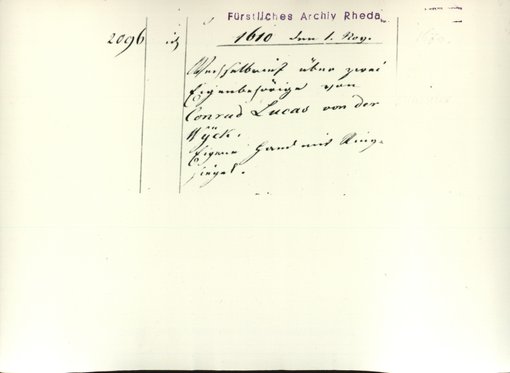 Fürstliches Archiv Rheda
2096
1610 den 1. Nov.
Wechselbrief über zwei
Eigenbehörige von
Conrad Lucas von der
Wÿck.
Eigene Hand mit Ring-
siegel.